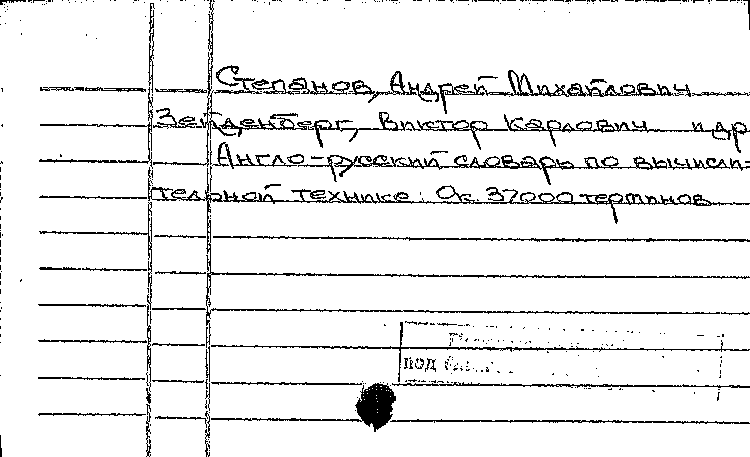 Степанов, Андрей Михайлович
Зейденберг, Виктор Карлович и др
Англо-русский словарь по вычисли-
тельной технике: Ок. 37000 терминов
под